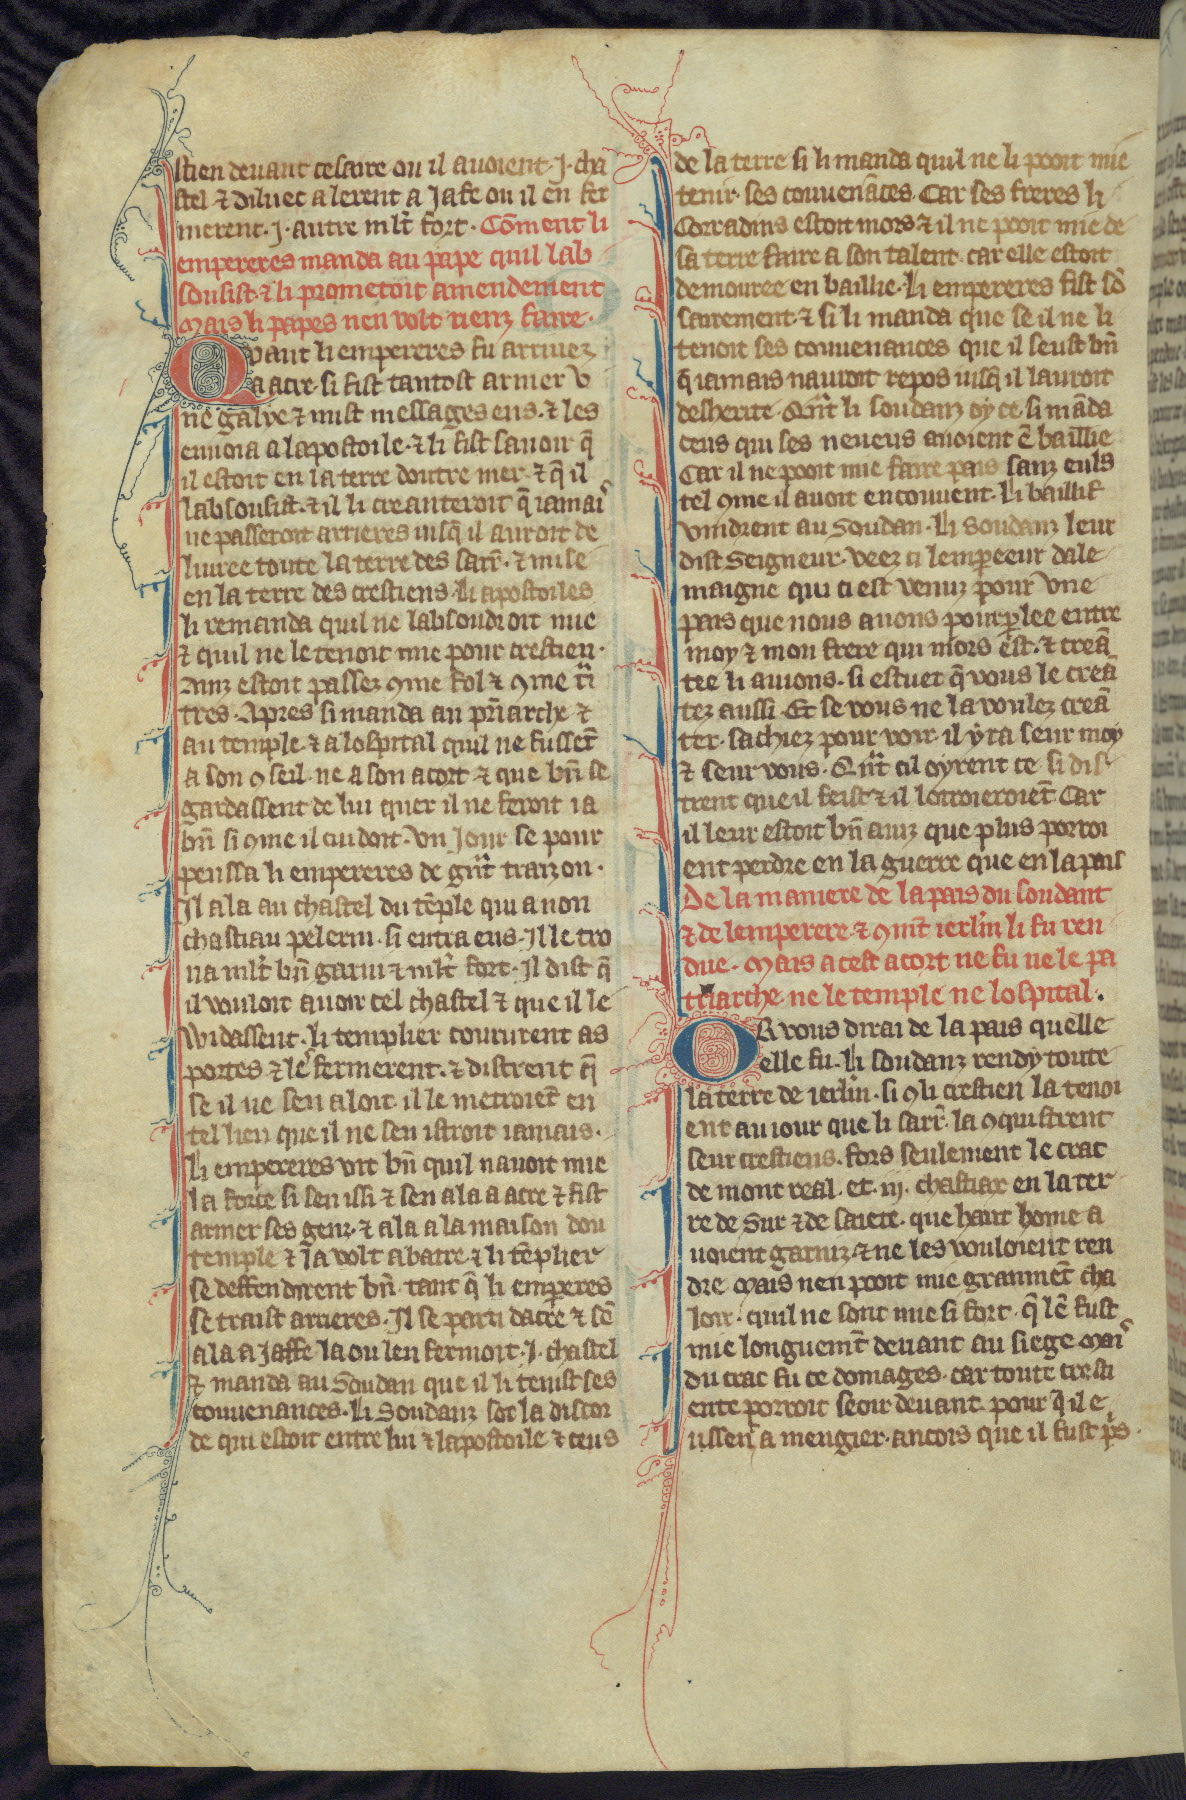 stien deuant cesaire ou il auoient .j. cha
stel ⁊ diluec alerent a Jafe ou il en fer
merent .j. autre ml̃t fort. Cõment li
empereres manda au pape quil lab
sousist. ⁊ li prometoit amendement
Mais li papes nen volt rienz faire.
Quant li empereres fu arriuez
a acre. si fist tantost armer v
ne galye ⁊ mist messages ens. ⁊ les
enuoia a lapostoile. ⁊ li fist sauoir q̃
il estoit en la terre doutre mer. ⁊ q̃ il
labsousist. ⁊ il li creanteroit q̃ iamais
ne passeroit arrieres iusq̃ il auroit de
liuree toute la terre des sarr̃. ⁊ mise
en la terre des crestiens. Li apostoiles
li remanda quil ne labsoudroit mie
⁊ quil ne le tenoit mie pour crestien.
Ainz estoit passez ꝯme fol ⁊ ꝯme tr̃i
tres. Apres si manda au pñarche ⁊
au temple. ⁊ a lospital quil ne fussẽt
a son ꝯseil. ne a son acort ⁊ que bñ se
gardassent de lui quer il ne feroit ia
bñ si ꝯme il cuidoit. Vn Jour se pour
penssa li empereres de gñt traizon.
Il ala au chastel du tẽple qui a non
chastiau pelerin. si entra ens. Il le tro
ua ml̃t bñ garni ⁊ ml̃t fort. Il dist q̃
il vouloit auoir cel chastel ⁊ que il le
widassent. li templier coururent as
portes ⁊ les fermerent. ⁊ distrent q̃
se il ne sen aloit. il le metroiẽt en
tel lieu que il ne sen istroit iamais.
Li empereres vit bñ quil nauoit mie
la force si sen issi ⁊ sen ala a acre ⁊ fist
armer ses genz. ⁊ ala a la maison dou
temple ⁊ la volt abatre. ⁊ li tẽplier
se deffendirent bñ. tant q̃ li emperes
se traist arrieres. Il se parti dacre ⁊ sẽ
ala a Jaffe la ou len fermoit .J. chastel
⁊ manda au Soudan que il li tenist ses
couuenances. Li Soudanz sot la discor
de qui estoit entre lui ⁊ lapostoile ⁊ ceus
de la terre si li manda quil ne li pooit mie
tenir. ses couuenãces. Car ses freres li
Corradins estoit mors ⁊ il ne pooit mie de
sa terre faire a son talent. car elle estoit
demouree en baillie. Li empereres fist sõ
sairement. ⁊ si li manda que se il ne li
tenoit ses couuenances que il seust bñ
q̃ iamais nauroit repos iusq̃ il lauroit
desherite. Qñt li soudanz oy ce. si mãda
ceus qui ses neueus auoient ẽ baillie
Car il ne pooit mie faire pais sanz euls
tel ꝯme il auoit encouuent. Li baillif
vindrent au Soudan. Li Soudanz leur
dist Seigneur. veez ci lempeeur dale
maigne qui ci est venuz pour vne
pais que nous auons pourplee entre
moy ⁊ mon frere qui mors est. ⁊ creã
tee li auions. si estuet q̃ vous le creã
tez aussi. Et se vous ne la voulez creã
ter. sachiez pour voir. il yra seur moy
⁊ seur vous. Qñt cil oyrent ce si dis
trent que il feist ⁊ il lotroieroiẽt Car
il leur estoit bñ auiz que plus porroi
ent perdre en la guerre que en la pais
De la maniere de la pais du soudant
⁊ de lemperere. ⁊ ꝯmt̃ ierlm̃ li fu ren
due. Mais a cest acort ne fu ne le pa
triarche ne le temple ne lospital.
OR vous dirai de la pais quelle
elle fu. Li soudanz rendy toute
la terre de ierlm̃. si ꝯ li crestien la tenoi
ent au iour que li sarr̃. la ꝯquistrent
seur crestiens. fors seulement le crac
de mont real. et .iij. chastiax en la ter
re de Sur ⁊ de saiete. que haut home a
uoient garniz. ⁊ ne les vouloient ren
dre. Mais nen pooit mie granmẽt cha
loir. quil ne sont mie si fort. q̃ lẽ fust
mie longuemt̃ deuant au siege Mais
du crac fu ce domages. car toute cresti
ente porroit seoir deuant. pour q̃ il e
ussent a mengier. ancois que il fust p̃s.